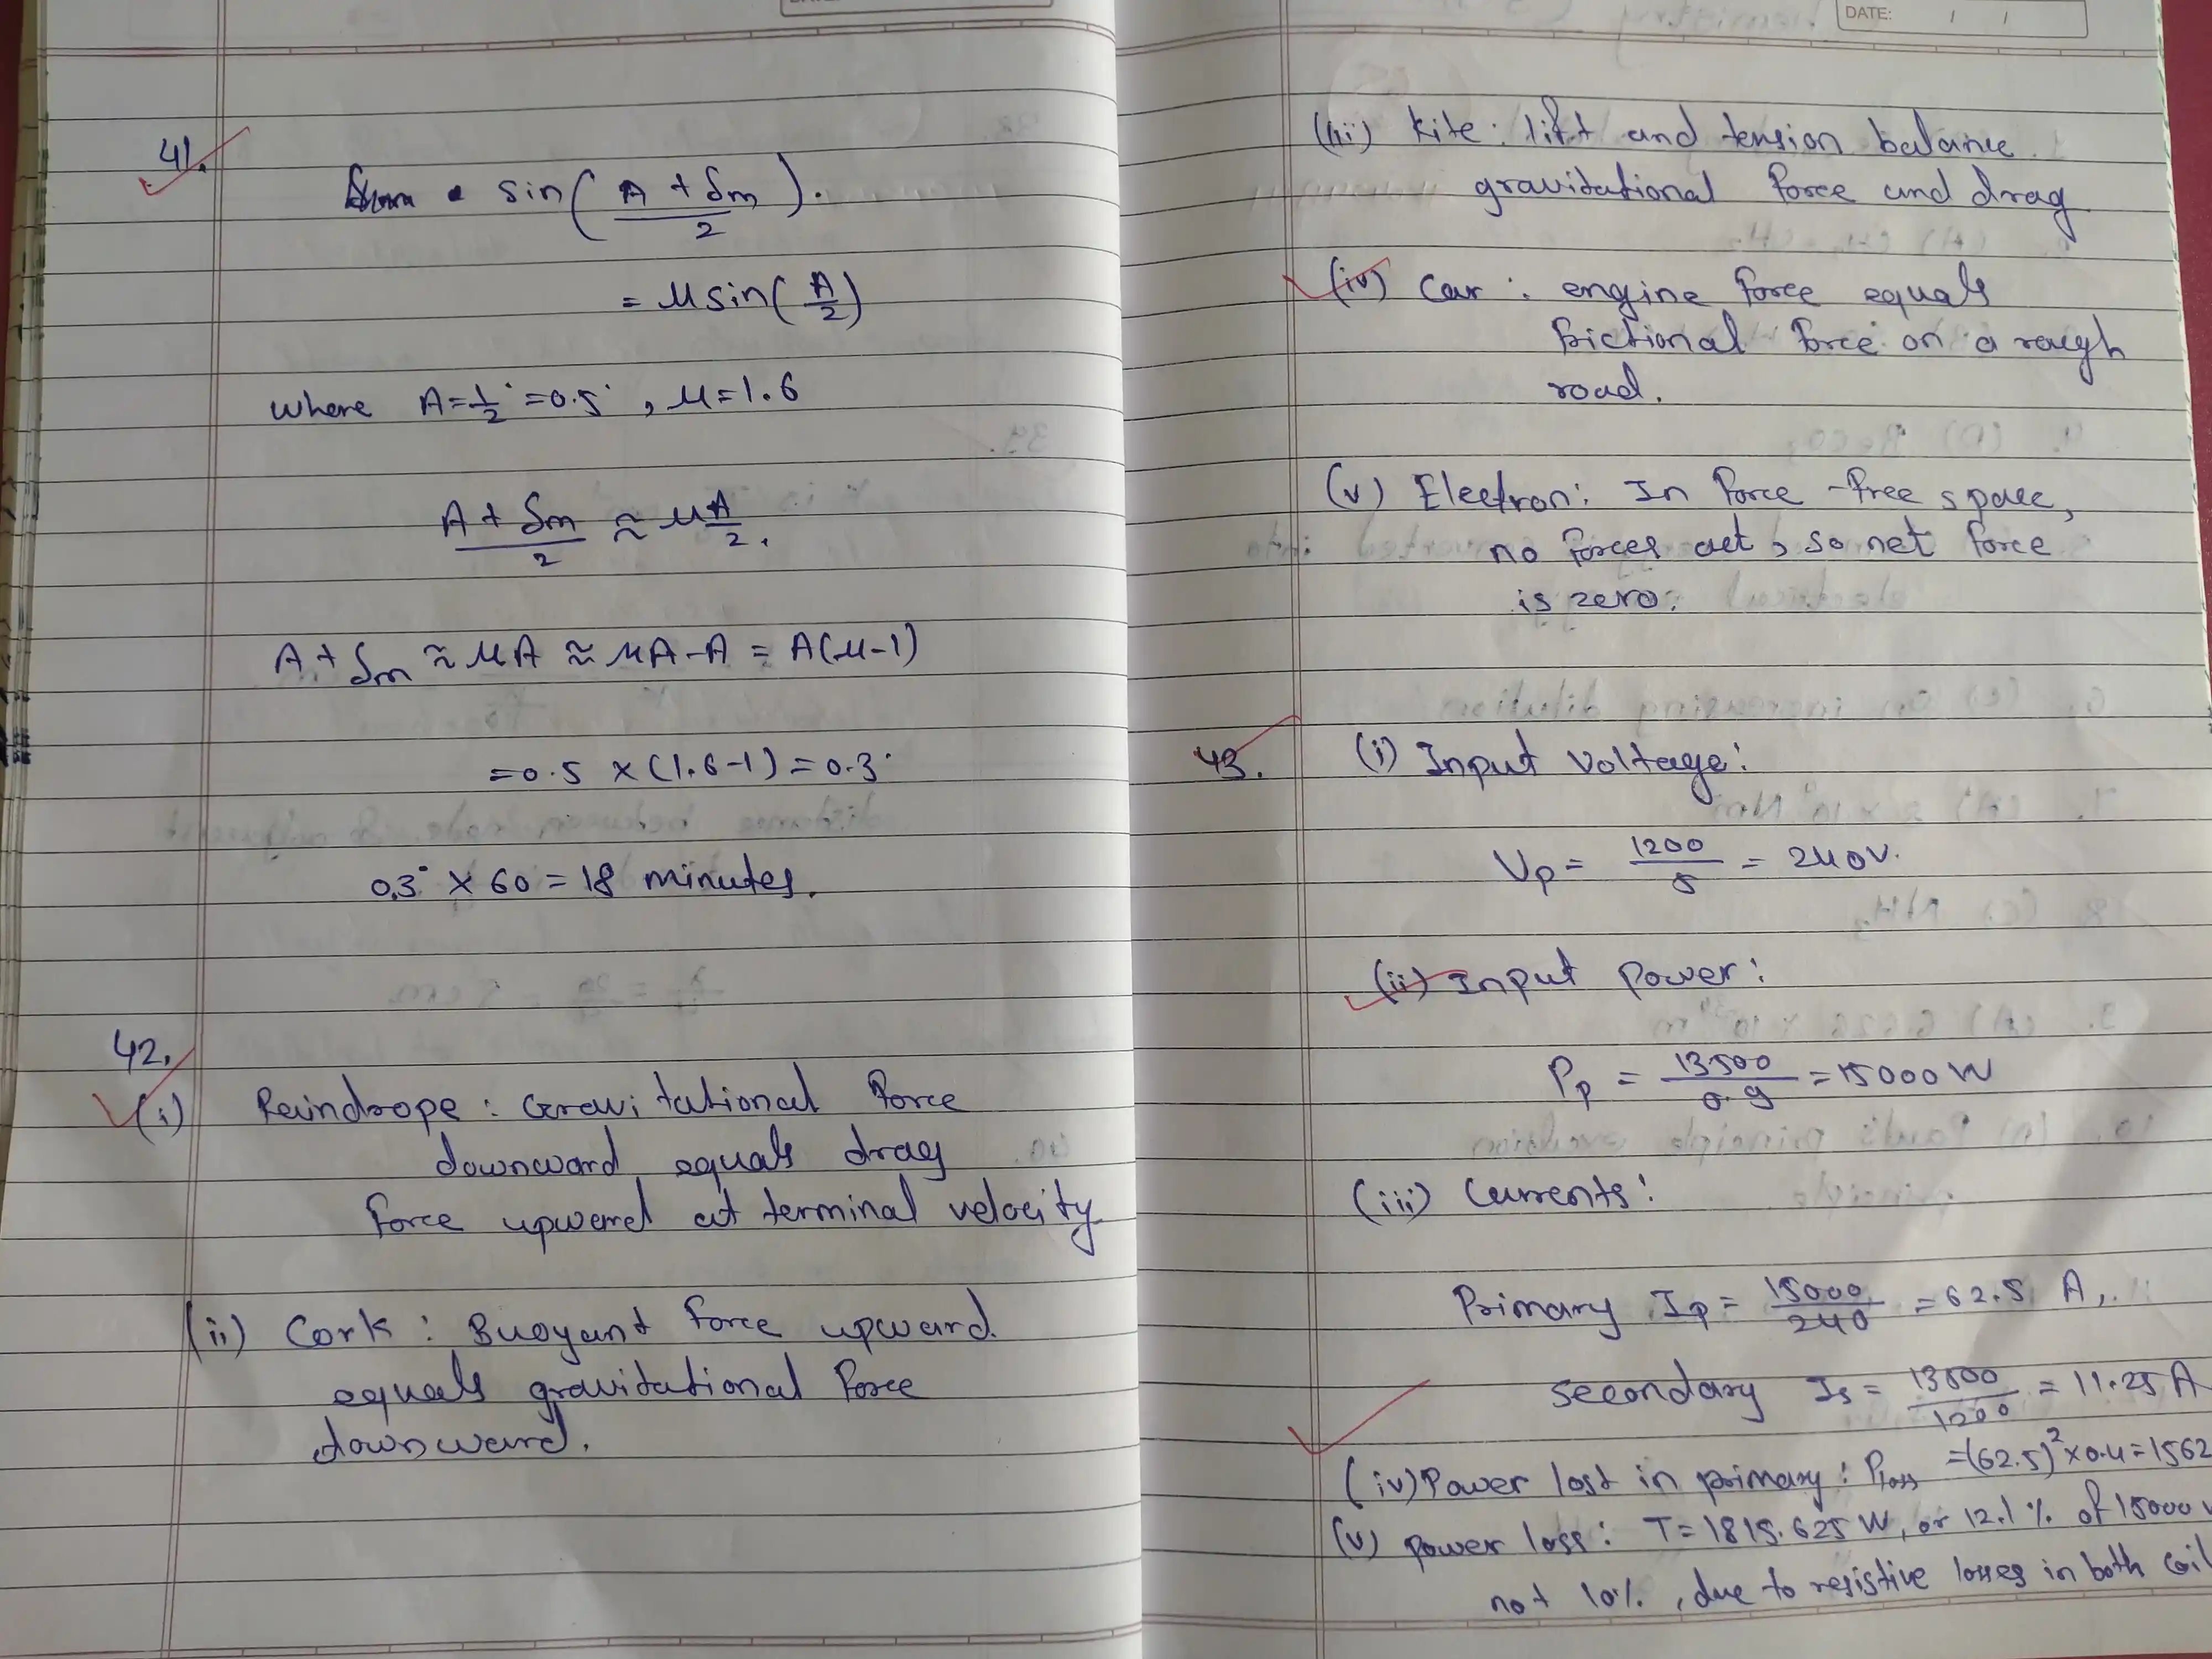 DATE: / /
41.
sin( A + δm / 2 ).
= μ sin( A/2 )
where A = 1/2° = 0.5°, μ = 1.6
A + δm / 2 ≈ μ A/2.
A + δm ≈ μA ≈ μA - A = A(μ-1)
= 0.5 × (1.6-1) = 0.3°
0.3° × 60 = 18 minutes.
42.
(i) Raindrope : Gravitational force
downward equals drag
force upward at terminal velocity
(ii) Cork : Buoyant force upward.
equals gravitational force
downward.
(iii) Kite : lift and tension balance
gravitational force and drag
(iv) Car : engine force equals
frictional force on a rough
road.
(v) Electron: In force-free space,
no forces act, so net force
is zero.
43. (i) Input Voltage:
Vp = 1200 / 5 = 240V.
(ii) Input Power:
Pp = 13500 / 0.9 = 15000 W
(iii) Currents:
Primary Ip = 15000 / 240 = 62.5 A,
secondary Is = 13500 / 1200 = 11.25 A
(iv) Power lost in primary : Ploss = (62.5)² × 0.4 = 1562
(v) Power loss : T = 1815.625 W, or 12.1 % of 15000 W
not 10%, due to resistive losses in both coil